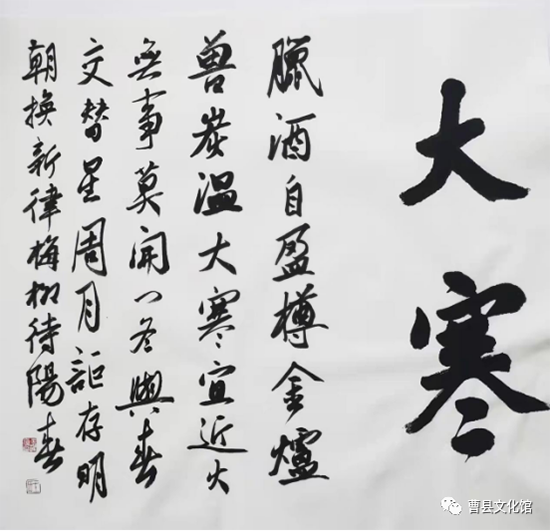 大寒
臘酒自盈樽金爐
兽炭温大寒宜近火
無事莫開门冬與春
交替星周月詎存明
朝換新律梅柳待陽春
曹县文化馆